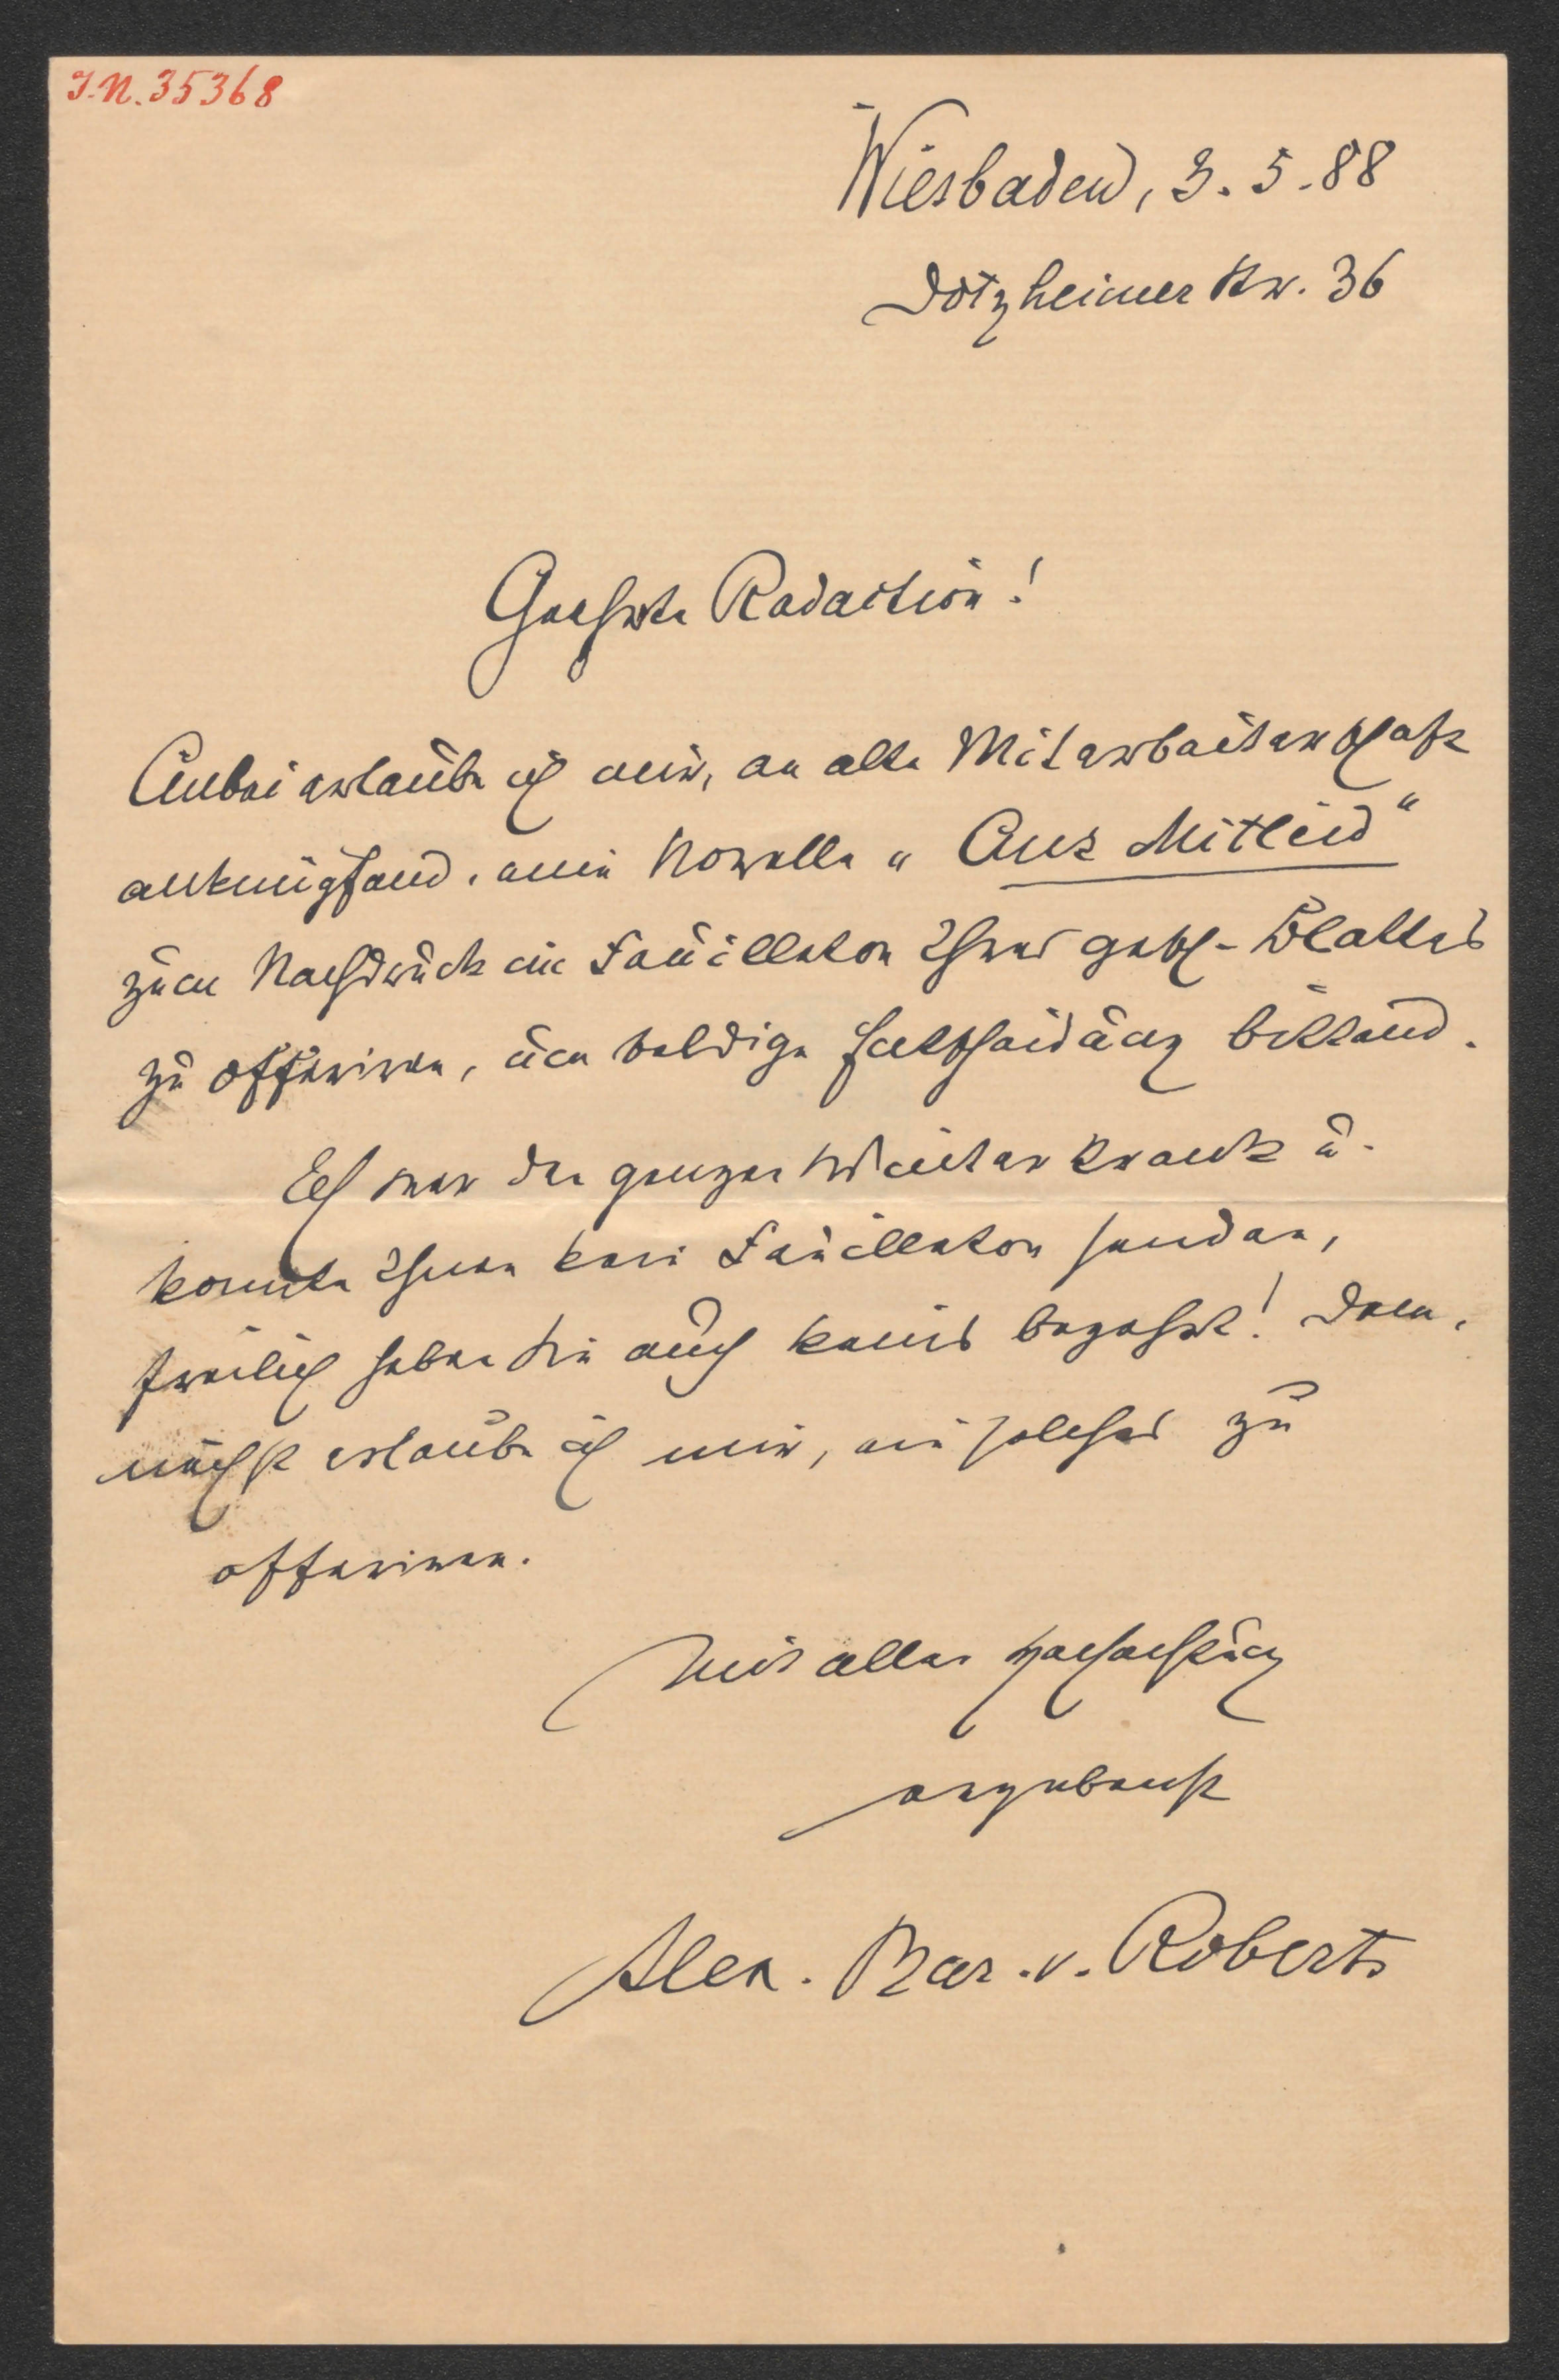 I.N. 35368
Wiesbaden, 3. 5. 88
Dotzheimer Str. 36
Geehrte Redaction!
Anbei erlaube ich mir, an alte Mitarbeiterschaft
anknüpfend, eine Novelle „Aus Mitleid"
zum Nachdruck im Feuilleton Ihres gesch. Blattes
zu offeriren, um baldige Entscheidung bittend.
Ich war den ganzen Winter krank u.
konnte Ihnen kein Feuilleton senden,
freilich haben Sie auch keins bezahlt! Dem-
nächst erlaube ich mir, ein solches zu
offeriren.
Mit aller Hochachtung
ergebenst
Alex. Bar. v. Roberts